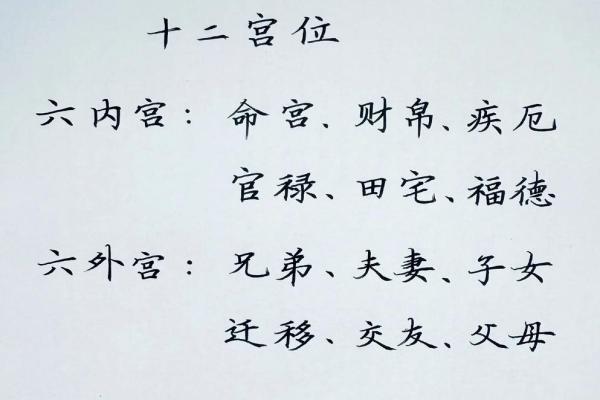 十二宫位
六内宫：命宫、财帛、疾厄
官禄、田宅、福德
六外宫：兄弟、夫妻、子女
迁移、交友、父母